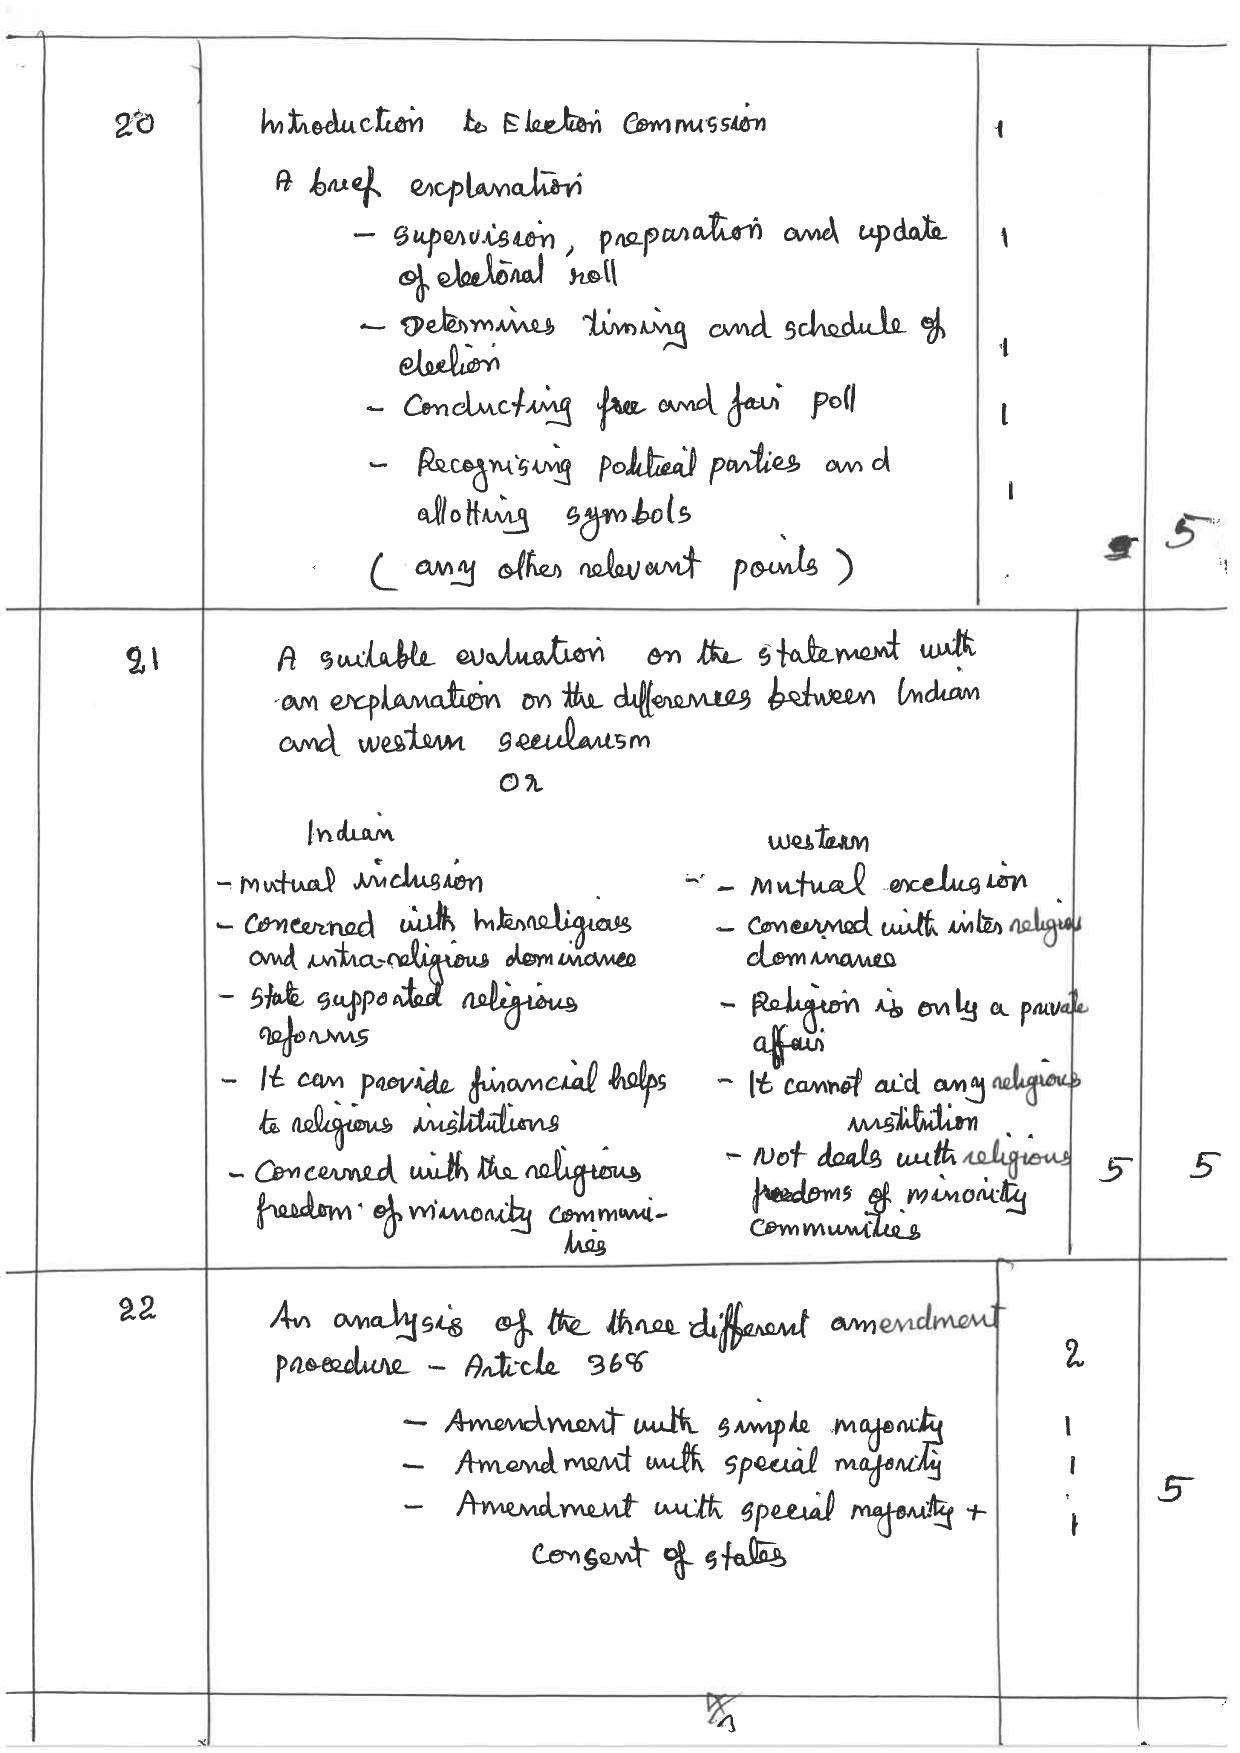 20 Introduction to Election Commission 1
A brief explanation
- supervision, preparation and update 1
of electoral roll
- Determines timing and schedule of
election 1
- Conducting free and fair poll 1
- Recognising political parties and
allotting symbols 1
5
( any other relevant points )
21 A suitable evaluation on the statement with
an explanation on the differences between Indian
and western secularism
OR
Indian western
- mutual inclusion - Mutual exclusion
- concerned with Interreligious - concerned with inter religious
and intra-religious dominance dominance
- state supported religious - Religion is only a private
reforms affair
- It can provide financial helps - It cannot aid any religious
to religious institutions institution
- Concerned with the religious - Not deals with religious 5 5
freedom of minority communi- freedoms of minority
ties communities
22 An analysis of the three different amendment
procedure - Article 368 2
- Amendment with simple majority 1
- Amendment with special majority 1
5
- Amendment with special majority + 1
consent of states